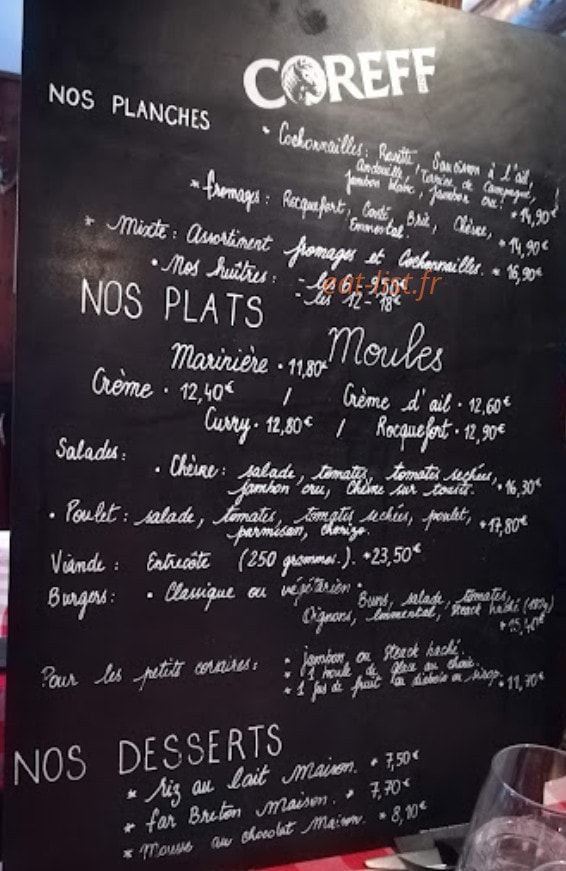 COREFF
NOS PLANCHES
* Cochonnailles: Rosette, Saucisson à l'ail,
Andouille, Terrine de Campagne,
jambon blanc, jambon cru. * 14,90€
* fromages: Rocquefort, Comté, Brie, Chèvre,
Emmental. * 14,90€
* Mixte: Assortiment fromages et Cochonnailles. * 16,90€
• Nos huîtres: - les 6 - 9,50€
- les 12 - 18€
eat-list.fr
NOS PLATS
Moules
Marinière • 11,80€
Crème • 12,40€ / Crème d'ail • 12,60€
Curry • 12,80€ / Rocquefort • 12,90€
Salades:
• Chèvre: salade, tomates, tomates sechées,
jambon cru, Chèvre sur toasts. * 16,30€
• Poulet: salade, tomates, tomates sechées, poulet,
parmisan, chorizo. * 17,80€
Viande: Entrecôte (250 grammes.). * 23,50€
Burgers: • Classique ou végétarien •
Buns, salade, tomates,
Oignons, Emmental, steack haché
* 15,40€
Pour les petits corsaires: * jambon ou steack haché.
* 1 boule de glace au choix
* 1 jus de fruit ou diabolo ou sirop. * 11,70€
NOS DESSERTS
* riz au lait Maison. * 7,50€
* far Breton Maison. * 7,70€
* Mousse au chocolat Maison. * 8,10€